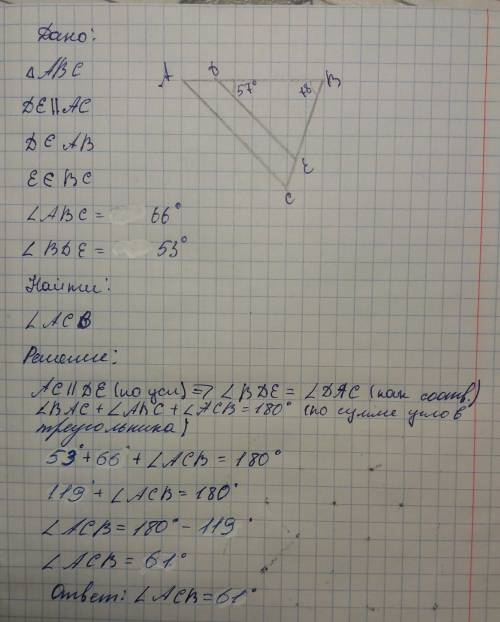 Дано:
△ABC
DE||AC
D∈AB
E∈BC
∠ABC = 66°
∠BDE = 53°
Найти:
∠ACB
Решение:
AC||DE (по усл) => ∠BDE = ∠DAC (как соотв.)
∠BAC + ∠ABC + ∠ACB = 180° (по сумме углов
треугольника)
53° + 66° + ∠ACB = 180°
119° + ∠ACB = 180°
∠ACB = 180° - 119°
∠ACB = 61°
Ответ: ∠ACB = 61°
A D B
57°
E
C